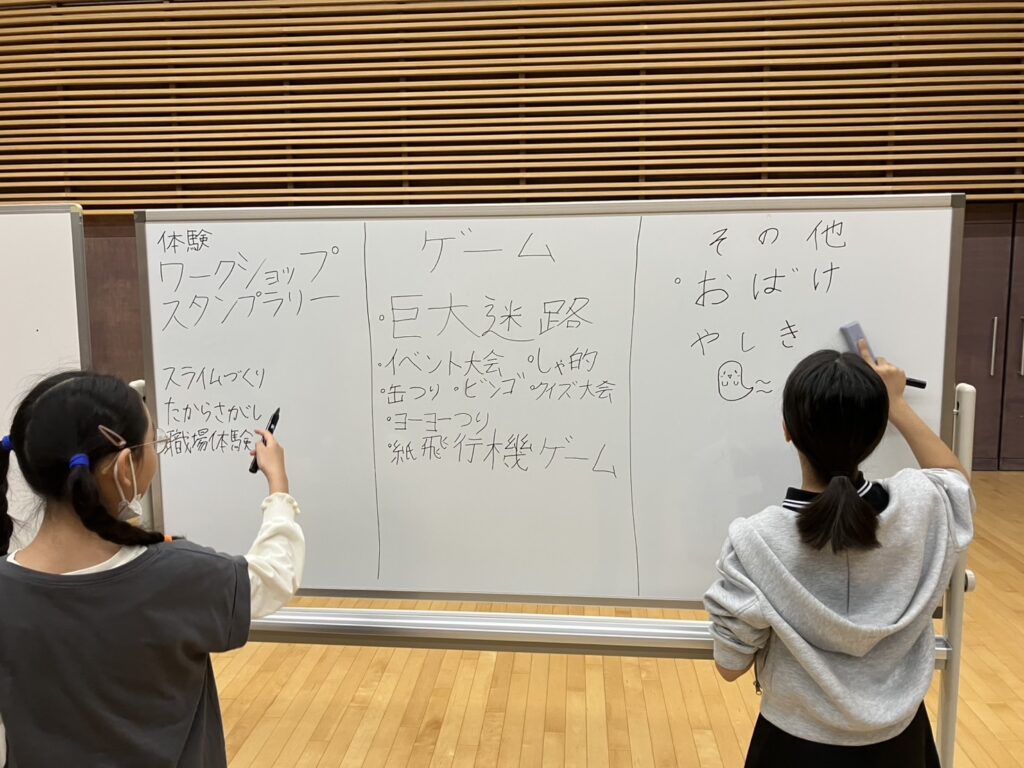 体験
ワークショップ
スタンプラリー
スライムづくり
たからさがし
職場体験
ゲーム
・巨大迷路
・イベント大会 ・しゃ的
・缶つり ・ビンゴ ・クイズ大会
・ヨーヨーつり
・紙飛行機ゲーム
その他
・おばけ
やしき